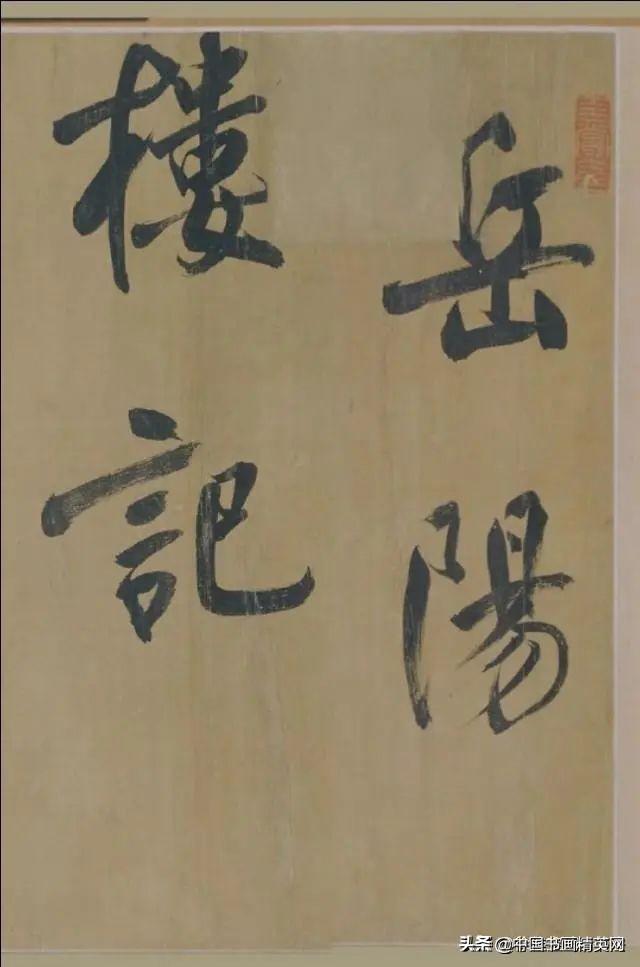 岳陽
樓記
头条@中国书画精英网